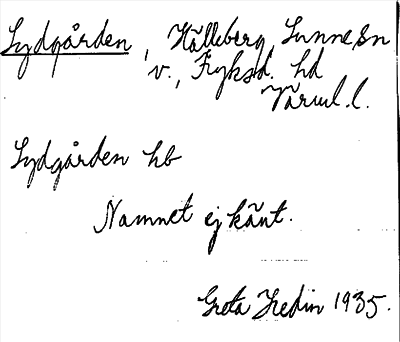 Sydgården, Hälleberg, Sunne sn
v., Fryksd. hd
Värml. l.
Sydgården hb
Namnet ej känt.
Greta Hedin 1935.